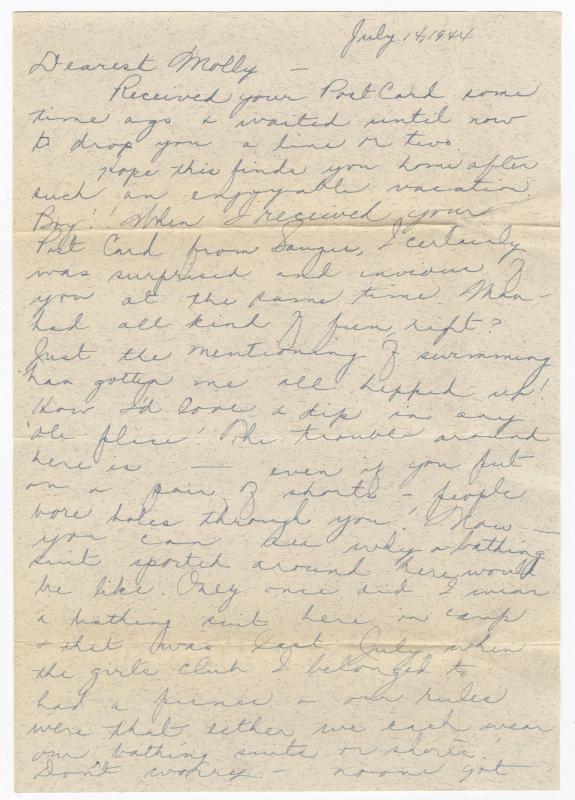 July 14, 1944
Dearest Molly —
Received your Post Card some
time ago & waited until now
to drop you a line or two.
Hope this finds you home after
such an enjoyable vacation.
Boy! When I received your
Post Card from I certainly
was surprised and invious of
you at the same time. Man —
had all kind of fun, heft?
Just the mentioning of swimming
has gotten me all hepped up!
How I'd love a dip in any
'ole place! The trouble around
here is — even if you put
on a pair of shorts — people
bore holes through you! Now —
you can see why a bathing
suit sported around here would
be like. Only once did I wear
a bathing suit here in camp
& that was last July when
the girls club I belonged to
had a picnic & our rules
were that either we each wear
our bathing suits or shorts.
Don't worry — noone got